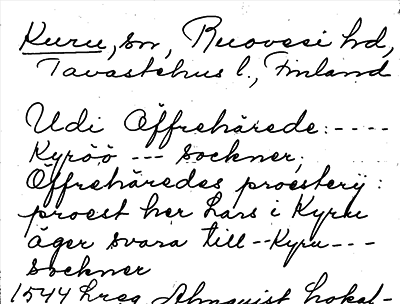 Kuru, sn, Ruovesi hd,
Tavastehus l., Finland
Udi Öffrehärede: ----
Kyröö --- sockner;
Öffrehäredes proestery:
proest her Lars i Kyru
äger svara till--Kyru---
sockner
1544 Almquist Lokal-